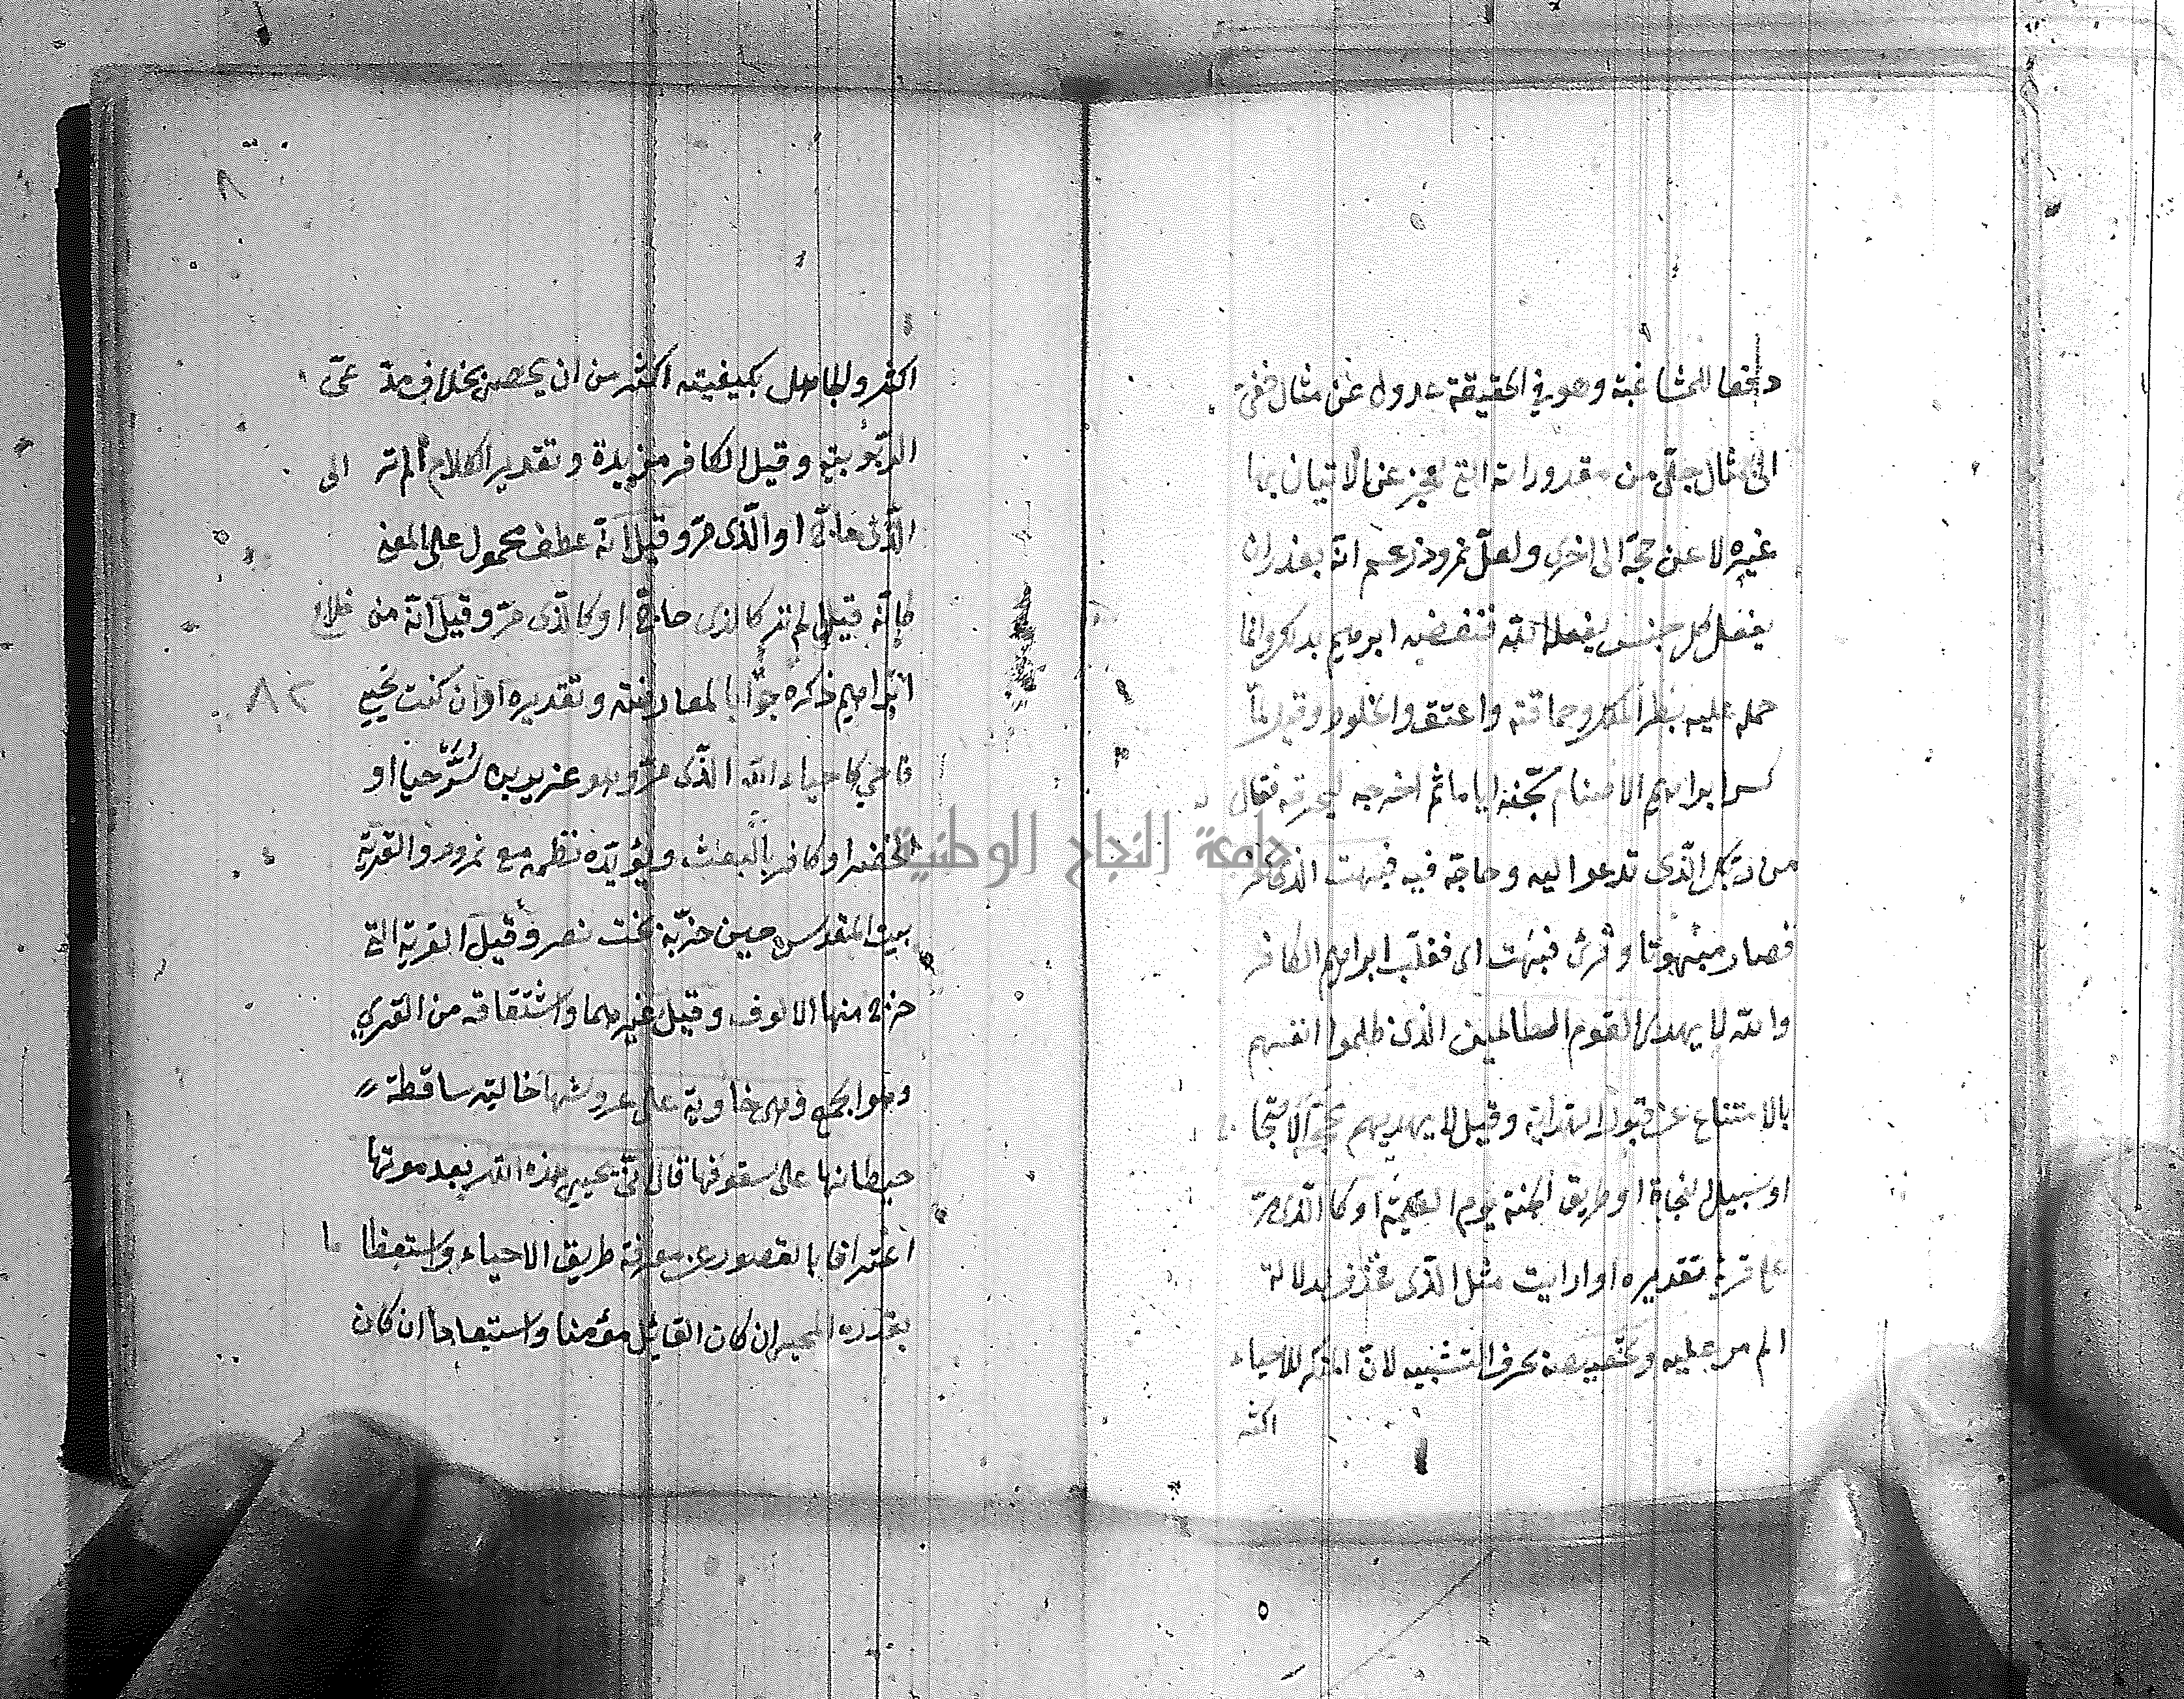 دفعا للمشاغبة وهو في الحقيقة عدول عن مثال خفي
الى مثال جلي من مقدوراته التي يعجز عن الاتيان بها
غيره لا عن حجة الى اخرى ولعل نمرود زعم انه يقدر ان
يفعل كل جنس يفعله الله فنقضه ابرهيم بذلك وانما
حمله عليه بطر الملك وحماقته واعتقد الحلول وقيل لما
كسر ابراهيم الاصنام سجنه اياما ثم اخرجه ليحرقه فقال
من ربك الذي تدعوا اليه وحاجه فيه فبهت الذي كفر
فصار مبهوتا وقرئ فبهت اى فغلب ابراهيم الكافر
والله لا يهدى القوم الظالمين الذين ظلموا انفسهم
بالامتناع عن قبول الهداية وقيل لا يهديهم محجة الاحتجا
او سبيل النجاة او طريق الجنة يوم القيمة او كالذى مر
على قرية تقديره او ارايت مثل الذى فحذف لدلالة
الم تر عليه وتخصيصه بحرف التشبيه لان المنكر للاحياء
اكثر
٨
اكثر والجاهل بكيفيته اكثر من ان يحصى بخلاف مدعى
الربوبية وقيل الكاف مزيدة وتقدير الكلام الم تر الى
الذى حاج او الذى مر وقيل انه عطف محمول على المعنى
كانه قيل الم تر كالذى حاج او كالذى مر وقيل انه من كلام
ابراهيم ذكره جوابا لمعارضته وتقديره او ان كنت تحيي
٨٢
فاحي كاحياء الله الذى مر وهو عزير بن شرحيا او
الخضر او كافر بالبعث ويؤيده نظمه مع نمرود والقرية
بيت المقدس حين خربه بخت نصر وقيل القرية التي
خرج منها الالوف وقيل غيرهما واشتقاقه من القري
وهو الجمع وهى خاوية على عروشها خالية ساقطة
حيطانها على سقوفها قال انى يحيي هذه الله بعد موتها
اعترافا بالقصور عن معرفة طريق الاحياء واستعظاما
بقدرة المحيي ان كان القائل مؤمنا واستبعادا ان كان
جامعة النجاح الوطنية